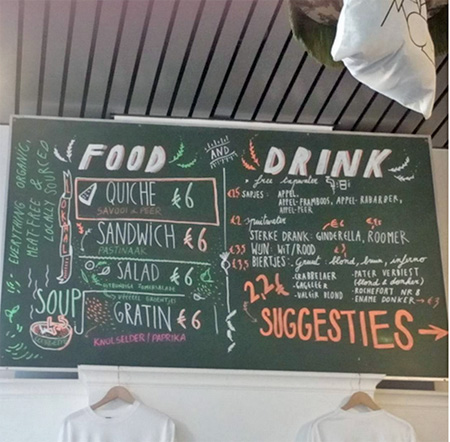 EVERYTHING ORGANIC,
MEAT-FREE &
LOCALLY SOURCED
FOOD
QUICHE €6
SAVOOI & PEER
SANDWICH €6
PASTINAAK
SALAD €6
SOUP
GRATIN €6
KNOLSELDER / PAPRIKA
AND
DRINK
free tapwater
SAPJES: APPEL
APPEL-FRAMBOOS, APPEL-RABARBER,
APPEL-PEER
€2 spuitwater
STERKE DRANK: GINDERELLA, ROOMER
WIJN: WIT/ROOD
BIERTJES: Gruut blond, bruin, inferno
-PATER VERLIEST
(blond & donker)
-ROCHEFORT NR 8
-VALEIR BLOND
-ENAME DONKER → €3
SUGGESTIES →